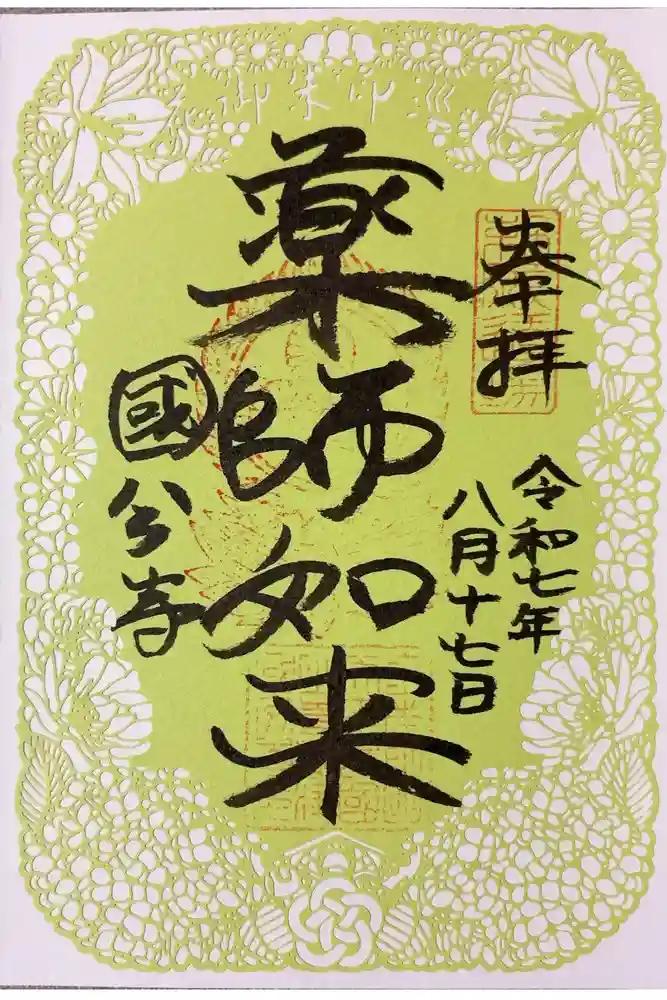 御朱印
奉拝
令和七年
八月十七日
薬師如来
國分寺